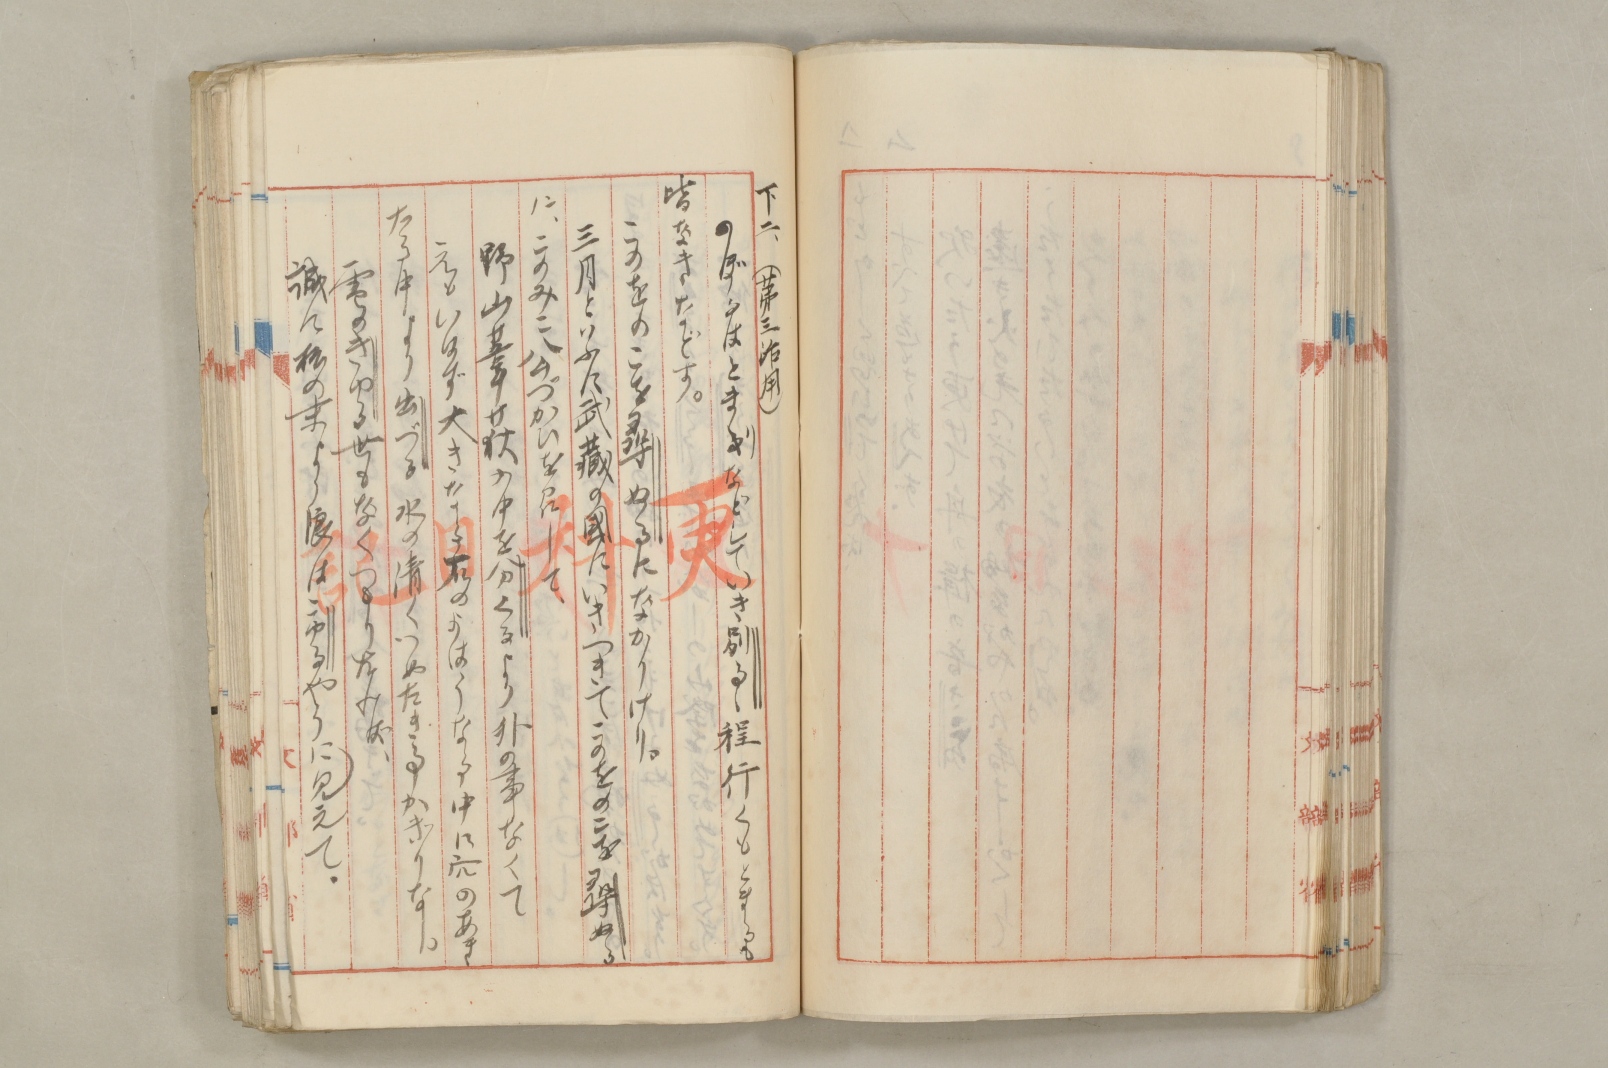 下二、(第三活用)
のぼるはとまりなどしていき別るゝ程行くもとまるも
皆なきなどす。
このをのこを尋ぬるになかりけり。
三月といふに武藏の國にいきつきてこのをのこを尋ぬる
に、このみこ公づかひを召して、
野山葦荻の中を分くるより外の事なくて
えもいはず大きなる石のよはうなる中に穴のあき
たる中より出づる水の清くつめたき事かぎりなし。
雪のきゆる世もなくつもりたれば、
誠に松の末より浪はこゆるやうに見えて。
更科日記